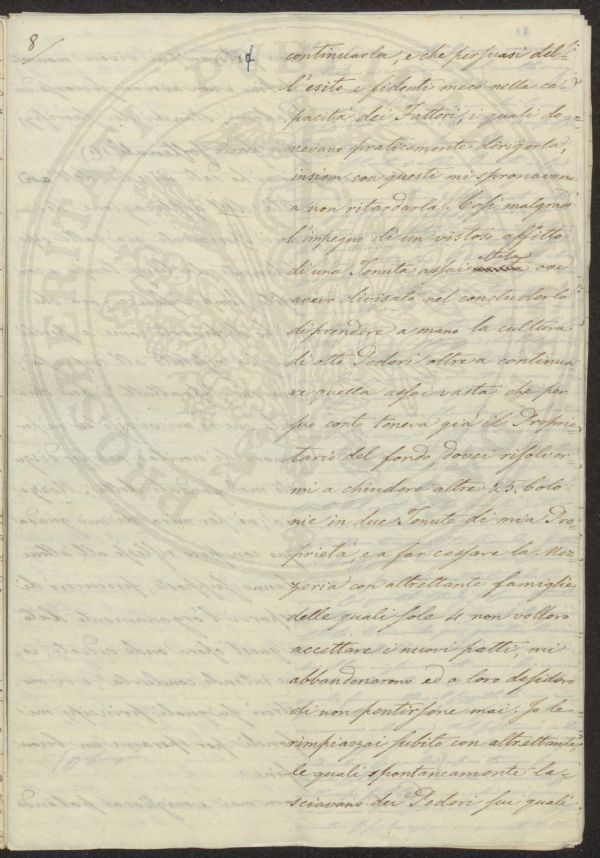 8
17
continuarla, e che persuasi del-
l'esito e fidenti meco nella ca-
pacità dei Fattori, i quali do-
vevano praticamente dirigerla,
insiem con questi mi spronavano
a non ritardarla. Così malgrado
l'impegno di un vistoso affitto
di una Tenuta assai estesa ove
avevo divisato nel concluderlo
di prendere a mano la cultura
di otto Poderi oltre a continua
re quella assai vasta che per
suo conto teneva già il Proprie-
tario del fondo, dovei risolver-
mi a chiudere altre 25. Colo-
nie in due Tenute di mia Pro-
prietà, e a far cessare la Mez-
zeria con altrettante famiglie
delle quali sole 4 non vollero
accettare i nuovi patti, mi
abbandonarono ed a loro desidero
di non pentirsene mai; Io le
rimpiazzai subito con altrettante,
le quali spontaneamente la-
sciavano dei Poderi sui quali
PROSPERITATI PUBLICAE